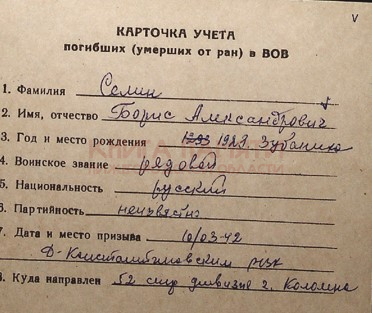 V
КАРТОЧКА УЧЕТА
погибших (умерших от ран) в ВОВ
1. Фамилия Семин
2. Имя, отчество Борис Александрович
3. Год и место рождения 1923
4. Воинское звание рядовой
5. Национальность русский
6. Партийность неизвестно
7. Дата и место призыва 10/03-42
Д-Константиновским РВК
8. Куда направлен 52 дивизию г. Коломна